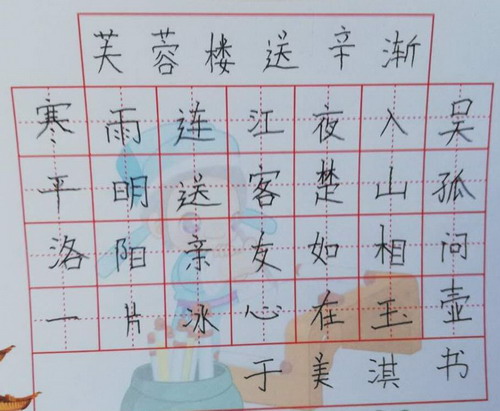 芙蓉楼送辛渐
寒雨连江夜入吴
平明送客楚山孤
洛阳亲友如相问
一片冰心在玉壶
于美淇书